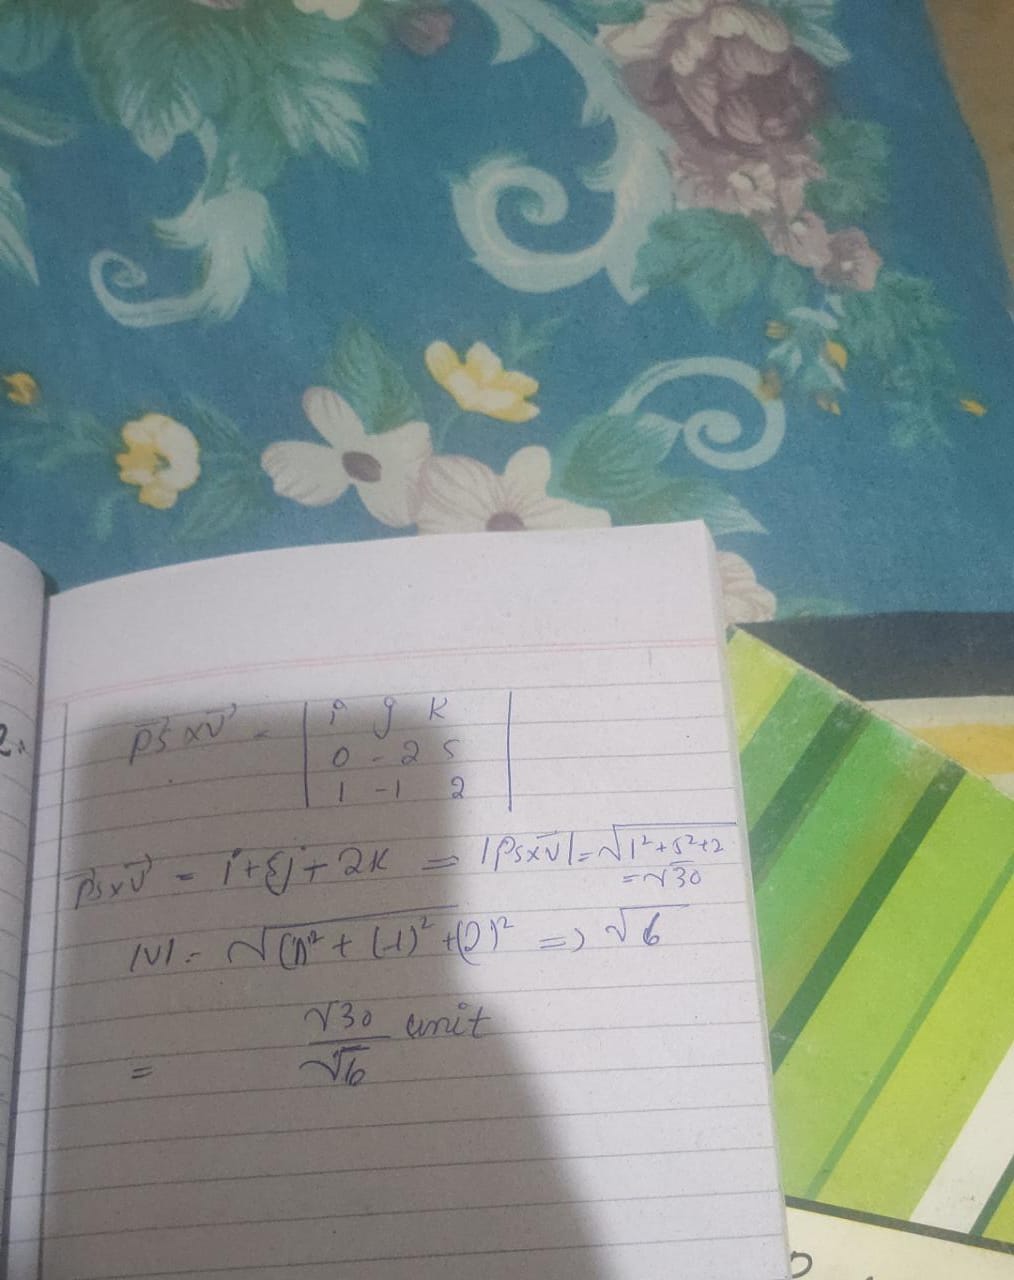 2.
PS⃗ × v⃗ = | i j k
0 -2 5
1 -1 2 |
PS⃗ × v⃗ = i + 5j + 2k => |PS × v⃗| = √1² + 5² + 2
= √30
|v| = √(1)² + (-1)² + (2)² => √6
= √30 / √6 unit